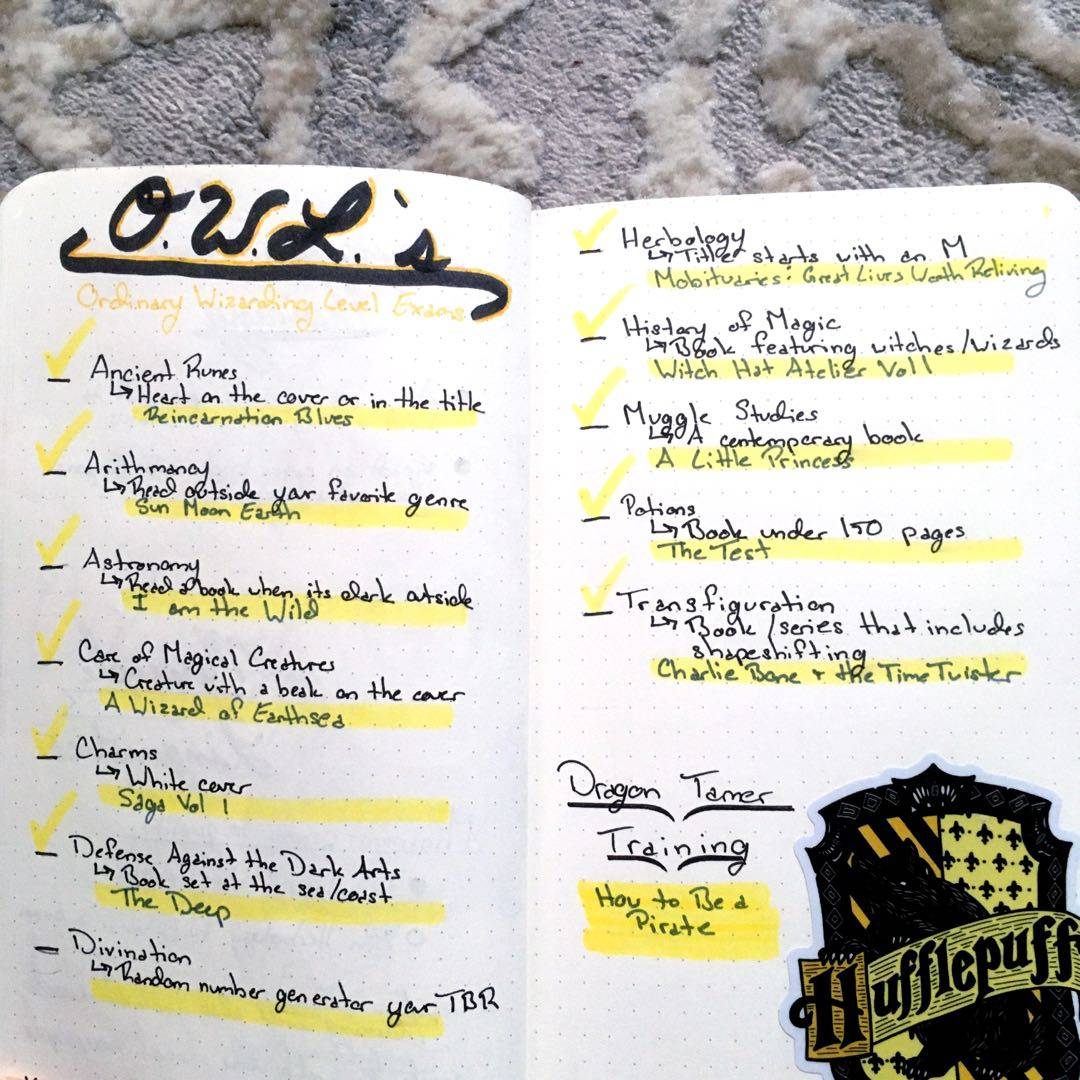 O.W.L.'s
Ordinary Wizarding Level Exams
Ancient Runes
↳ Heart on the cover or in the title
Reincarnation Blues
Arithmancy
↳ Read outside your favorite genre
Sun Moon Earth
Astronomy
↳ Read a book when its dark outside
I am the Wild
Care of Magical Creatures
↳ Creature with a beak on the cover
A Wizard of Earthsea
Charms
↳ White cover
Saga Vol 1
Defense Against the Dark Arts
↳ Book set at the sea/coast
The Deep
Divination
↳ Random number generator your TBR
Herbology
↳ Title starts with an M
Mobituaries: Great Lives Worth Reliving
History of Magic
↳ Book featuring witches/wizards
Witch Hat Atelier Vol 1
Muggle Studies
↳ A contemporary book
A Little Princess
Potions
↳ Book under 150 pages
The Test
Transfiguration
↳ Book/series that includes
shapeshifting
Charlie Bone + the Time Twister
Dragon Tamer
Training
How to Be a
Pirate
Hufflepuff